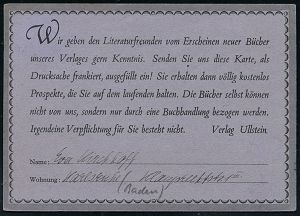 Wir geben den Literaturfreunden vom Erscheinen neuer Bücher
unseres Verlages gern Kenntnis. Senden Sie uns diese Karte, als
Drucksache frankiert, ausgefüllt ein! Sie erhalten dann völlig kostenlos
Prospekte, die Sie auf dem laufenden halten. Die Bücher selbst können
nicht von uns, sondern nur durch eine Buchhandlung bezogen werden.
Irgendeine Verpflichtung für Sie besteht nicht. Verlag Ullstein.
Name: Eva
Wohnung: Karlsruhe
(Baden)